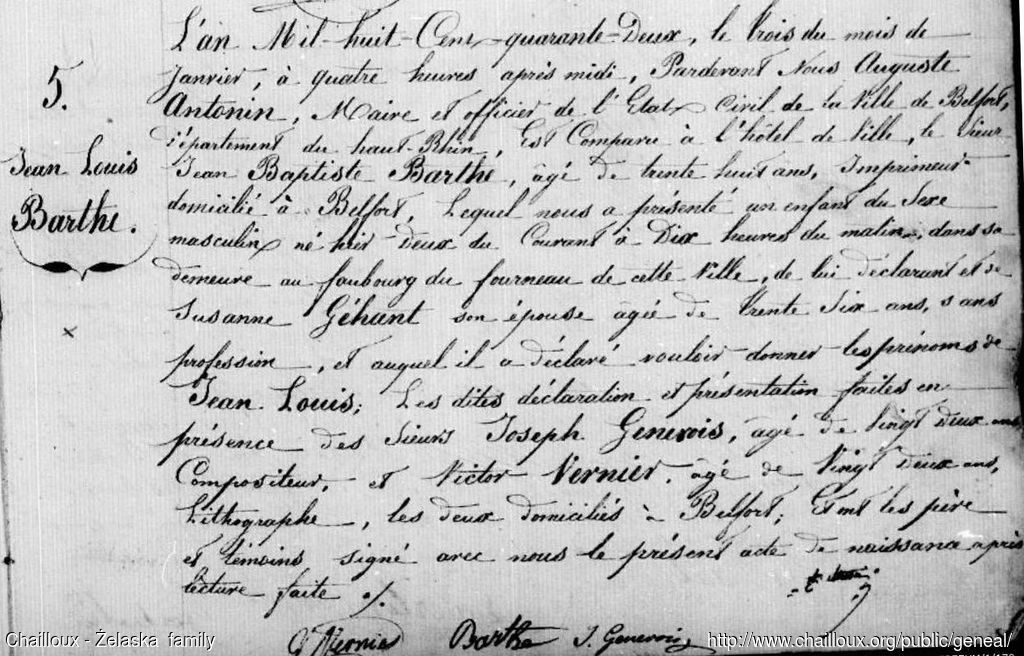 5.
Jean Louis
Barthe.
L'an Mil-huit-Cent-quarante-Deux, le trois du mois de
Janvier, à quatre heures après midi, Pardevant Nous Auguste
Antonin, Maire et officier de l'Etat Civil de la Ville de Belfort,
Département du haut-Rhin, Est Comparu à l'hôtel de Ville, le Sieur
Jean Baptiste Barthe, âgé de trente huit ans, Imprimeur
domicilié à Belfort, Lequel nous a présenté un enfant du Sexe
masculin né hier Deux du Courant à Dix heures du matin, dans sa
demeure au faubourg du fourneau de cette Ville, de lui déclarant et de
Susanne Géhant son épouse agée de Trente Six ans, sans
profession, et auquel il a déclaré vouloir donner les prénoms de
Jean Louis; Les dites déclaration et présentation faites en
présence des Sieurs Joseph Genevois, âgé de Vingt Deux ans
Compositeur, et Victor Vernier, âgé de Vingt Deux ans,
Lithographe, les deux domiciliés à Belfort; Et ont les père
et témoins signé avec nous le présent acte de naissance après
lecture faite ./.
Vernier Barthe J. Genevois
Chailloux - Żelaska family
http://www.chailloux.org/public/geneal/